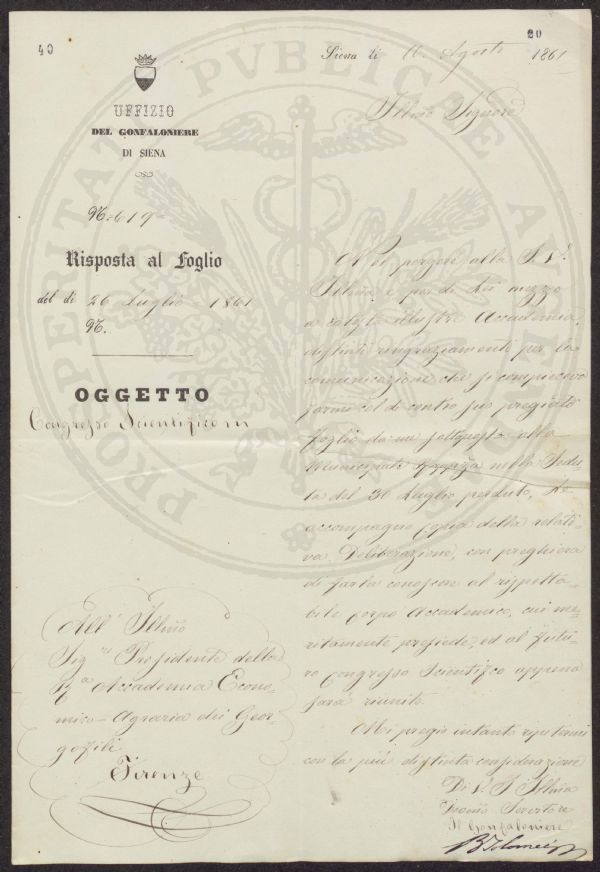 40
20
Siena li 16. Agosto 1861
UFFIZIO
DEL GONFALONIERE
DI SIENA
Illmo Signore
N. 619
Risposta al Foglio
del dì 26 Luglio 1861
N.
OGGETTO
Congresso Scientifico
Nel porgere alla S. V.
Illma, e per di Lei mezzo
a cotesta illustre Accademia
distinti ringraziamenti per la
comunicazione che si compiaceva
farmi col di contro suo pregiato
foglio da me sottoposto alla
Municipale nella Sedu-
ta del 30 Luglio perduto, Le
accompagno copia della relati-
va Deliberazione, con preghiera
di farla conoscere al rispetta-
bile corpo Accademico, cui me-
ritamente presiede, ed al futu-
ro congresso Scientifico appena
sarà riunito.
Mi pregio intanto ripetermi
con la più distinta considerazione
Di V. S. Illma
Devmo Servitore
Il Gonfaloniere
All' Illmo
Sigre Presidente della
Ra Accademia Econo-
mico-Agraria dei Geor-
gofili
Firenze
PROSPERITATI PUBLICAE AUGENDAE